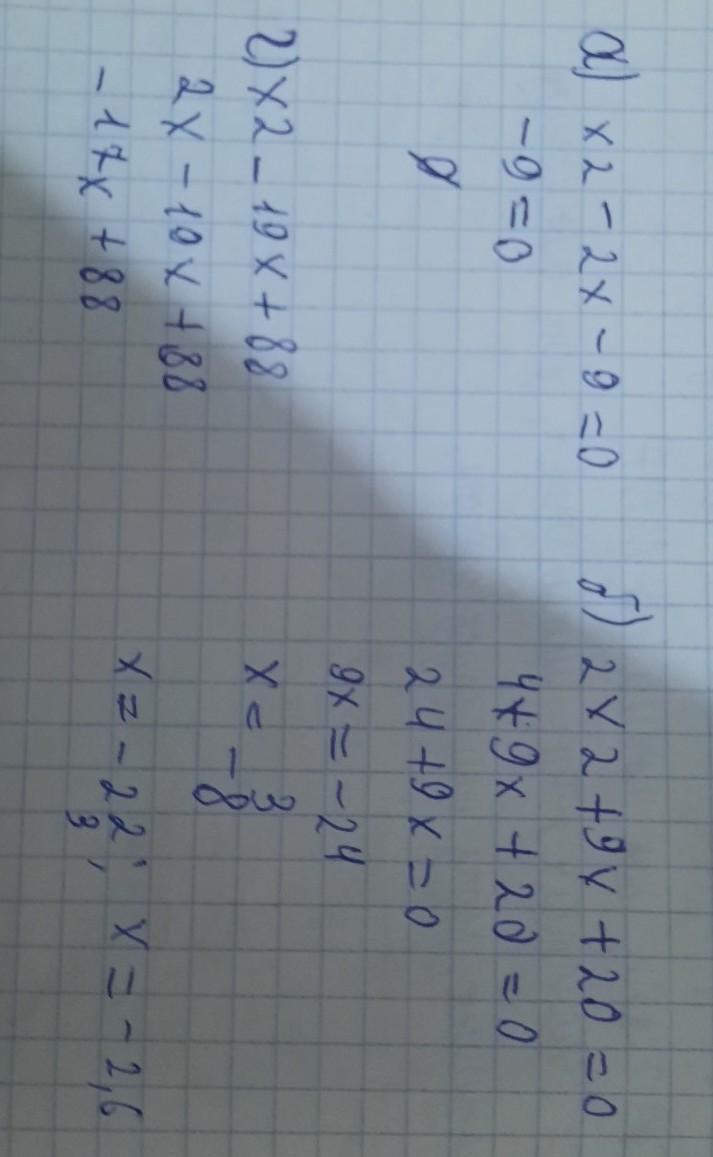 а) x2 - 2x - 9 = 0
-9 = 0
∅
г) x2 - 19x + 88
2x - 19x + 88
-17x + 88
б) 2x2 + 9x + 20 = 0
4 + 9x + 20 = 0
24 + 9x = 0
9x = -24
x = -3/8
x = -2 2/3; x = -2,6